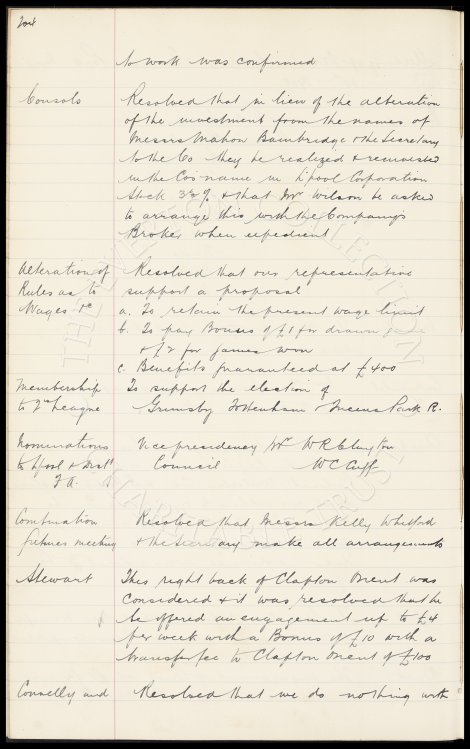 204
to work was confirmed
Consols Resolved that in lieu of the alteration
of the investment from the names of
Messrs Mahon Bainbridge & the Secretary
to the Co they be realized & reinvested
in the Co's name in L'pool Corporation
Stock 3½% & that Mr Wilson be asked
to arrange this with the Company's
Broker when expedient
Alteration of Resolved that our representative
Rules as to support a proposal
Wages &c a. To retain the present wage limit
b. To pay Bonus of £1 for drawn
& £2 for games won
c. Benefits guaranteed at £400
Membership To support the election of
to 2nd League Grimsby Tottenham & Queens Park R.
Nominations Vice presidency Mr W R Clayton
to L'pool & Dist Council W C Cuff
F A.
Combination Resolved that Messrs Kelly Whitford
fixtures meeting & the Secretary make all arrangements
Stewart This right back of Clapton Orient was
considered & it was resolved that he
be offered an engagement up to £4
per week with a Bonus of £10 with a
transfer fee to Clapton Orient of £100
Connelly and Resolved that we do nothing with
THE EVERTON COLLECTION
CHARITABLE TRUST